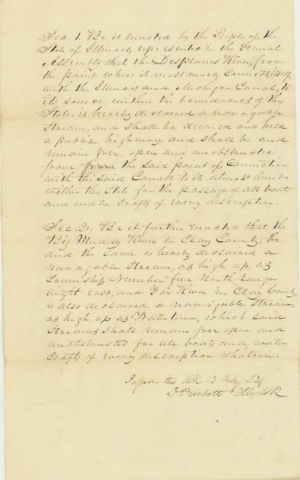 Sec. 1. Be it enacted by the People of the
State of Illinois, represented in the General
Assembly that the Desplanes River, from
the point where it most nearly connects
with the Illinois and Michigan Canal, to
its source, within the boundaries of this
State, is hereby declared a navigable
Stream, and shall be deemed and held
a public highway and shall be and
remain free open and unobstructed
from the said point of connection
with the said Canal to its utmost limit
within this State for the passage of all boats
and water crafts of every description.
Sec. 2. Be it further enacted that the
Big Muddy River in Clay County, be
and the same is hereby declared a
navigable Stream, as high up, as
Township Number five North Range
eight east, and Fox River in Clay County
is also declared a navigable Stream
as high up as Watertown, which said
Streams shall remain free open and
unobstructed for all boats and water
crafts of every description whatever.
Passed the HR 13 Feby 1839
J Prickett Clk HR